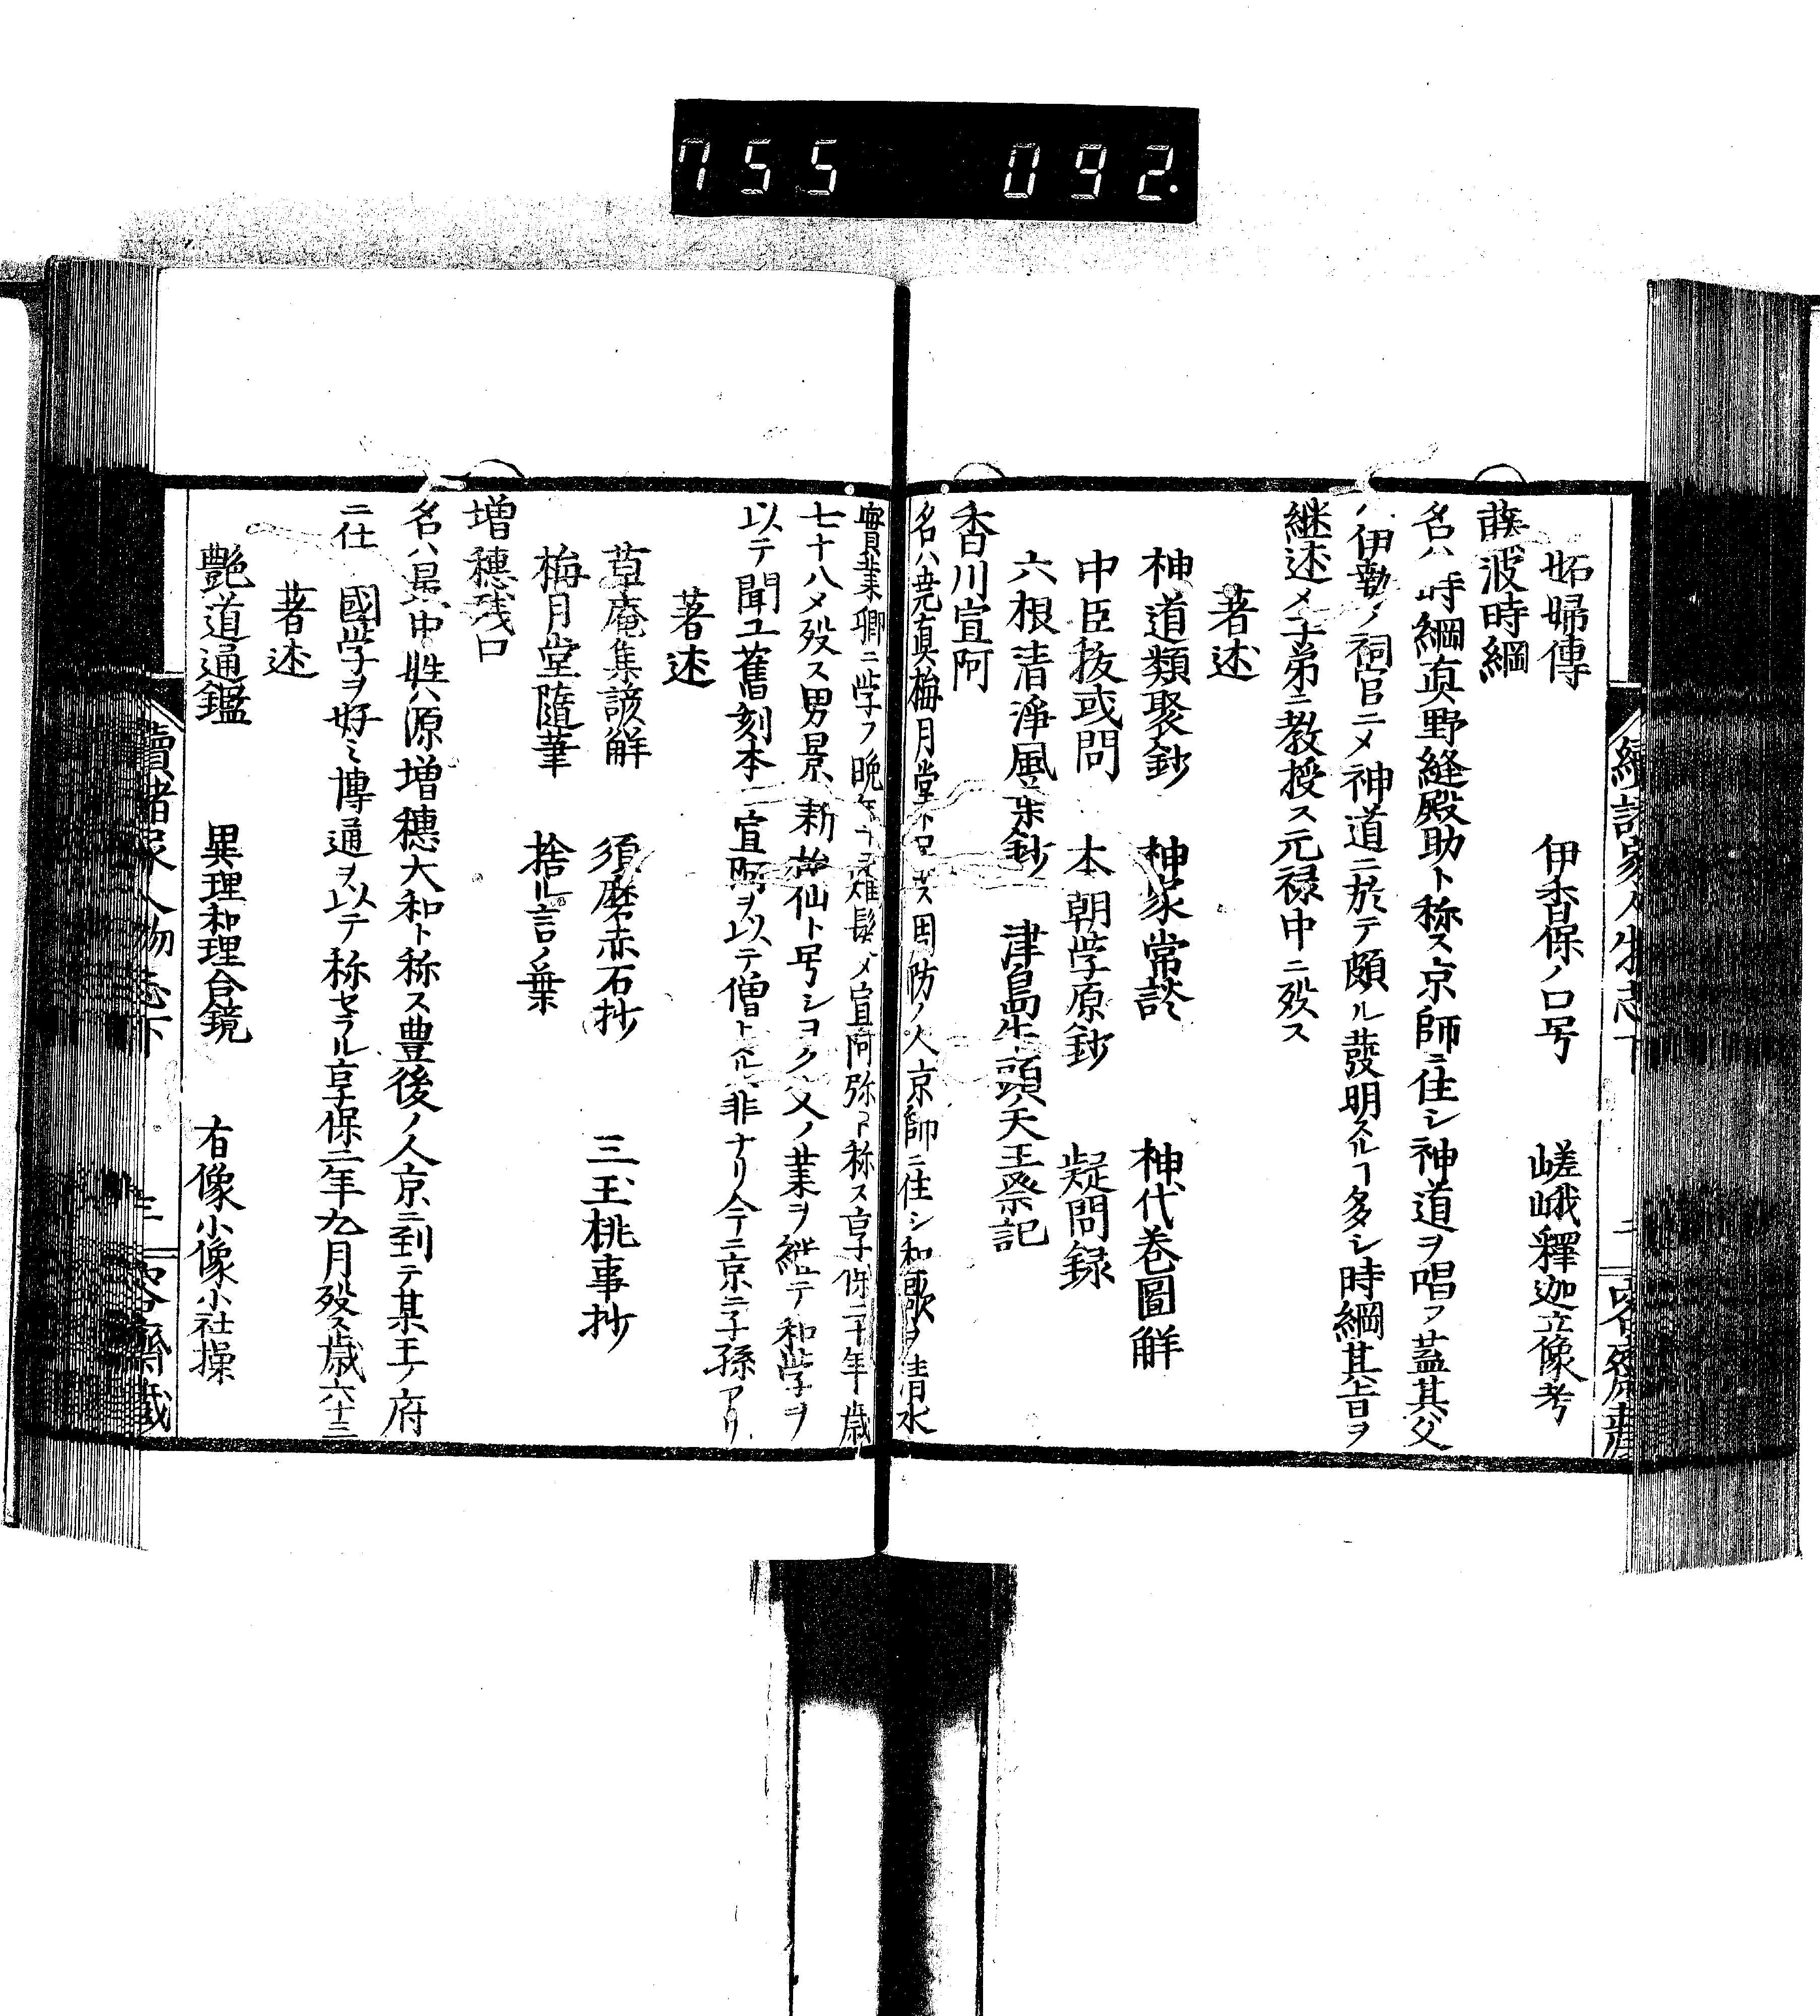 755 092.
妬婦傳 伊香保ノ口号 嵯峨釋迦立像考
藤波時綱
名ハ時綱真野縫殿助ト称ス京師ニ住シ神道ヲ唱フ蓋其父
ハ伊勢ノ祠官ニメ神道ニ於テ頗ル発明スルヿ多シ時綱其旨ヲ
継述メ子弟ニ教授ス元禄中ニ歿ス
著述
神道類聚鈔 神家常談 神代巻圖解
中臣祓或問 本朝学原鈔 疑問録
六根清淨風葉鈔 津島牛頭天王祭記
香川宣阿
名ハ尭真梅月堂ト号ス周防ノ人京師ニ住シ和歌ヲ清水
實業卿ニ学フ晩年ニ薙髪メ宣阿弥ト称ス享保二十年歳
七十八メ歿ス男景新梅仙ト号シヨク父ノ業ヲ継テ和学ヲ
以テ聞ユ舊刻本ニ宣阿ヲ以テ僧トスルハ非ナリ今ニ京ニ子孫アリ
著述
草庵集諺解 須磨赤石抄 三玉桃事抄
梅月堂隨筆 捨ル言ノ葉
増穂残口
名ハ最中姓ハ源増穂大和ト称ス豊後ノ人京ニ到テ某王ノ府
ニ仕 國学ヲ好ミ博通ヲ以テ称セラル享保二年九月歿ス歳六十三
著述
艶道通鑑 異理和理合鏡 有像小像小社操
續諸家人物志下 三